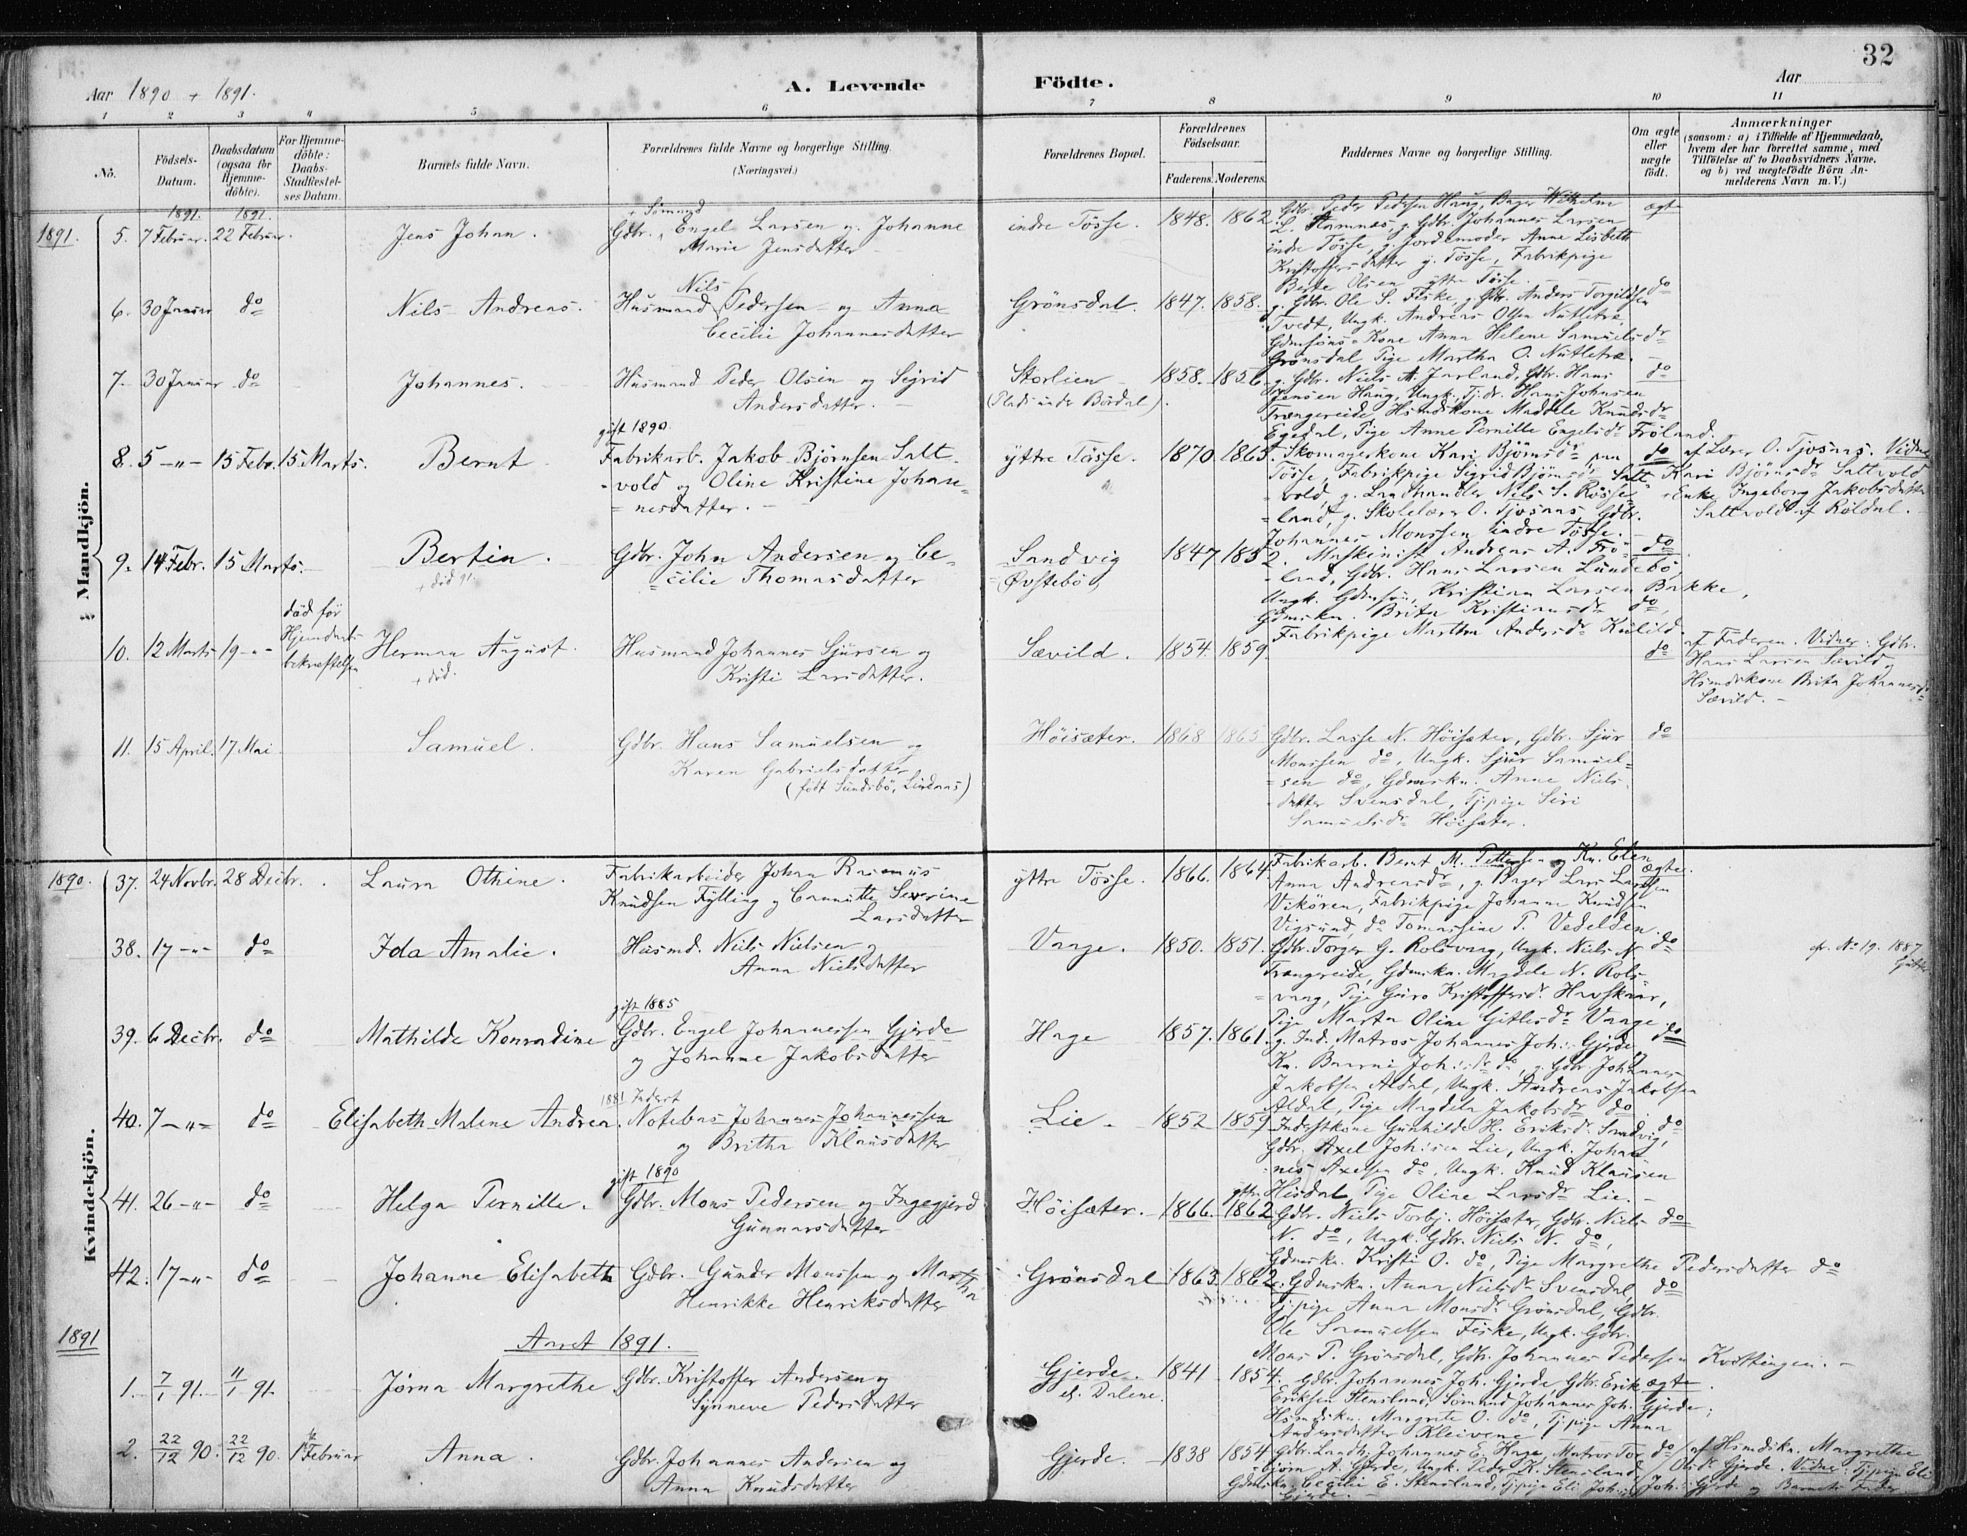 32
Aar 1890 + 1891.
A. Levende Födte.
Aar
1 2 3 4 5 6 7 8 9 10 11
No.
Födsels-Datum.
Daabsdatum (ogsaa for Hjemmedöbte).
For Hjemmedöbte: Daabs-Stadfæstelses Datum.
Barnets fulde Navn.
Forældrenes fulde Navne og borgerlige Stilling. (Næringsvei.)
Forældrenes Bopæl.
Forældrenes Födselsaar.
Faderens. Moderens.
Faddernes Navne og borgerlige Stilling.
Om ægte eller uægte födt.
Anmærkninger
(saasom: a) i Tilfælde af Hjemmedaab, hvem der har forrettet samme, med Tilföielse af to Daabsvidners Navne, og b) ved uægtefödte Börn Anmelderens Navn m. V.)
Mandkjön.
1891. 1891. 1891.
5. 7 Februar. 22 Februar. Jens Johan. Gdbr. + Sømand Engel Larsen og Johanne
Marie Jensdatter
indre Tösse. 1848. 1862.
Gdbr. Peder Pedersen Haug, Bager Wilhelm
L. Hamnes, g. Gdbr. Johannes Larsen
indre Tösse, g. Jordemoder Anne Lisbeth
Kristoffersdatter g. Tösse, Fabrikpige
Berte Olsen yttre Tösse.
ægte
6. 30 Januar do Nils Andreas. Husmand Nils Pedersen og Anna
Cecilie Johannesdatter
Grönsdal. 1847. 1858.
g. Gdbr. Ole S. Fiske, g. Gdbr. Anders Torgildsen
Tvedt, Ungk. Andreas Olsen Nutletræ,
Gdmsöns-Kone Anna Helene Samuelsdr
Grönsdal, Pige Martha O. Nutletræ.
do
7. 30 Januar do Johannes. Husmand Peder Olsen og Sigrid
Andersdatter.
Storlien
(Plads under Bördal).
1858. 1856.
g. Gdbr. Niels M. Jarland, Gdbr. Hans
Jensen Haug, Ungk. Tj.dr. Hans Johnsen
Trængereide, Hsmdskone Maddele Knudsdr
Egedal, Pige Anne Pernille Engelsdr Fröland.
do
gift 1890.
8. 5 -"- 15 Febr. 15 Marts. Bernt Fabrikarb. Jakob Björnsen Salt
vold og Oline Kristine Johan-
nesdatter.
yttre Tösse. 1870. 1863.
Skomagerkone Kari Björnsdr paa
Tösse, Fabrikpige Sigrid Björnsdr Salt-
vold, g. Landhandler Nils S. Rösse-
land, g. Skolelærer O. Tjosaas, Gdbr.
Johannes Monssen indre Tösse.
do
af Lærer O. Tjosaas. Vidner
Kari Björnsdr Saltvold
Enke Ingeborg Jakobsdatter
Saltvold af Röldal.
9. 14 Febr. 15 Marts. Bertin. Gdbr. John Andersen og Ce-
cilie Thomasdatter
+ död 91.
Sandvig
Øvstebö,
1847 1852.
Maskinist Andreas A. Frö-
land, Gdbr. Hans Larsen Lundebö,
Ungk. Gdmsön, Kristian Larsen Bakke,
Gdmskn. Brita Kristiansdr do,
Fabrikpige Martha Andersdr Kulild
do
död før
Hjemdaabs-
bekræftelsen
10. 12 Marts 19 -"- Herman August. Husmand Johannes Sjursen og
Kristi Larsdatter.
+ död.
Sævild. 1854. 1859.
do
af Faderen. Vidner: Gdbr.
Hans Larsen Sævild og
Hsmdskone Brita Johannesdr
Sævild.
11. 15 April. 17 Mai Samuel. Gdbr. Hans Samuelsen og
Karen Gabrielsdatter
(født Sundsbö, Lindaas)
Höisæter. 1868 1865
Gdbr. Lasse N. Höisæter, Gdbr. Sjur
Monssen do, Ungk. Sjur Samuel-
sen do, Gdmskn. Anne Niels-
datter Svensdal, Tj.pige Siri
Samuelsdr Höisæter.
do
Kvindekjön.
1890.
37. 24 Novbr. 28 Decbr. Laura Othine. Fabrikarbeider Johan Rasmus
Knudsen Fylling og Severine
Larsdatter
yttre Tösse. 1866. 1864.
Fabrikarb. Bernt M. Pettersen og Kn. Elen
Anna Andreasdr, g. Bager Lars Larsen
Vikören, Fabrikpige Johanne Knudsen
Vigsund, do Tomassine P. Vedelden.
ægte
38. 17 -"- do Ida Amalie. Husmd. Neils Nielsen og
Anna Nielsdatter
Vaage. 1850. 1851.
Gdbr. Torger G. Rolsvaag, Ungk. Niels N.
Trængereide, Gdmskn. Magdele N. Rols-
vaag, Pige Guro Kristoffersdr. Havskaar,
Pige Marta Oline Gitlesdr Vaage
do
cfr. No 19. 1887
gift 1885
39. 6 Decbr. do Mathilde Konradine Gdbr. Engel Johannessen Gjerde
og Johanne Jakobsdatter
Hage 1857. 1861.
g. Ind. Matros Johannes Joh. Gjerde
Kn. Joh.sdr do, g. Gdbr. Johannes
Jakobsen Aldal, Ungk. Andreas Jakobsen
Aldal, Pige Magdela Jakobsdr do
do
1881 Inderst
40. 7 -"- do Elisabeth Malene Andrea. Notebas Johannes Johannessen
og Britha Klausdatter
Lie 1852 1859
Inderstkone Gunhilde H. Eriksdr Sandvig,
Gdbr. Axel Joh.sen Lie, Ungk. Johan-
nes Axelsen do, Ungk. Knud Klausen
Hisdal, Pige Oline Larsdr Lie.
do
gift 1890
41. 26 -"- do Helga Pernille. Gdbr. Mons Pedersen og Ingegjerd
Gunnarsdatter
Höisæter. 1866. 1862
Gdbr. Niels Torbj. Höisæter, Gdbr. Niels
N. do, Ungk. Gdbr. Niels N. do,
Gdmskn. Kristi O. do, Pige Margrethe Pedersdatter do
do
42. 17 -"- do Johanne Elisabeth Gdbr. Gunder Monssen og Martha
Henrikke Henriksdatter
Grönsdal 1863. 1862
Gdmskn. Anna Nielsdr Svensdal,
Tj.pige Anna Monsdr Grönsdal, Gdbr.
Ole Samuelsen Fiske, Ungk. Gdbr.
Mons P. Grönsdal, Gdbr. Johannes Pedersen Kvittingen.
do
1891
Aaret 1891.
1. 7/1 91. 11/1 91. Jørna Margrethe Gdbr. Kristoffer Andersen og
Synneve Pedersdatter
Gjerde.
el. Dalene
1841 1854.
Gdbr. Johannes Joh. Gjerde Gdbr. Erik
Eriksen Stensland, Sømand Johannes Joh. Gjerde,
Hsmdskn. Margrete O. do, Tj.pige Anna
Andersdatter Kleivene
ægte
2. 22/12 90. 22/12 90. 1 Februar Anna. Gdbr. Johannes Andersen og
Anna Knudsdatter
Gjerde. 1838 1854
Gdbr. Landh. Johannes E. Hage, Matros Tor-
björn A. Gjerde, Ungk. Peder K. Stensland,
Gdmskn. Cecilie E. Stensland, Tj.pige Eli Joh.
Gjerde.
do
af Hsmdskn. Margrethe
Olsdr Gjerde. Vidner: Tj.pige Eli
Joh. Gjerde og Barnets Fader